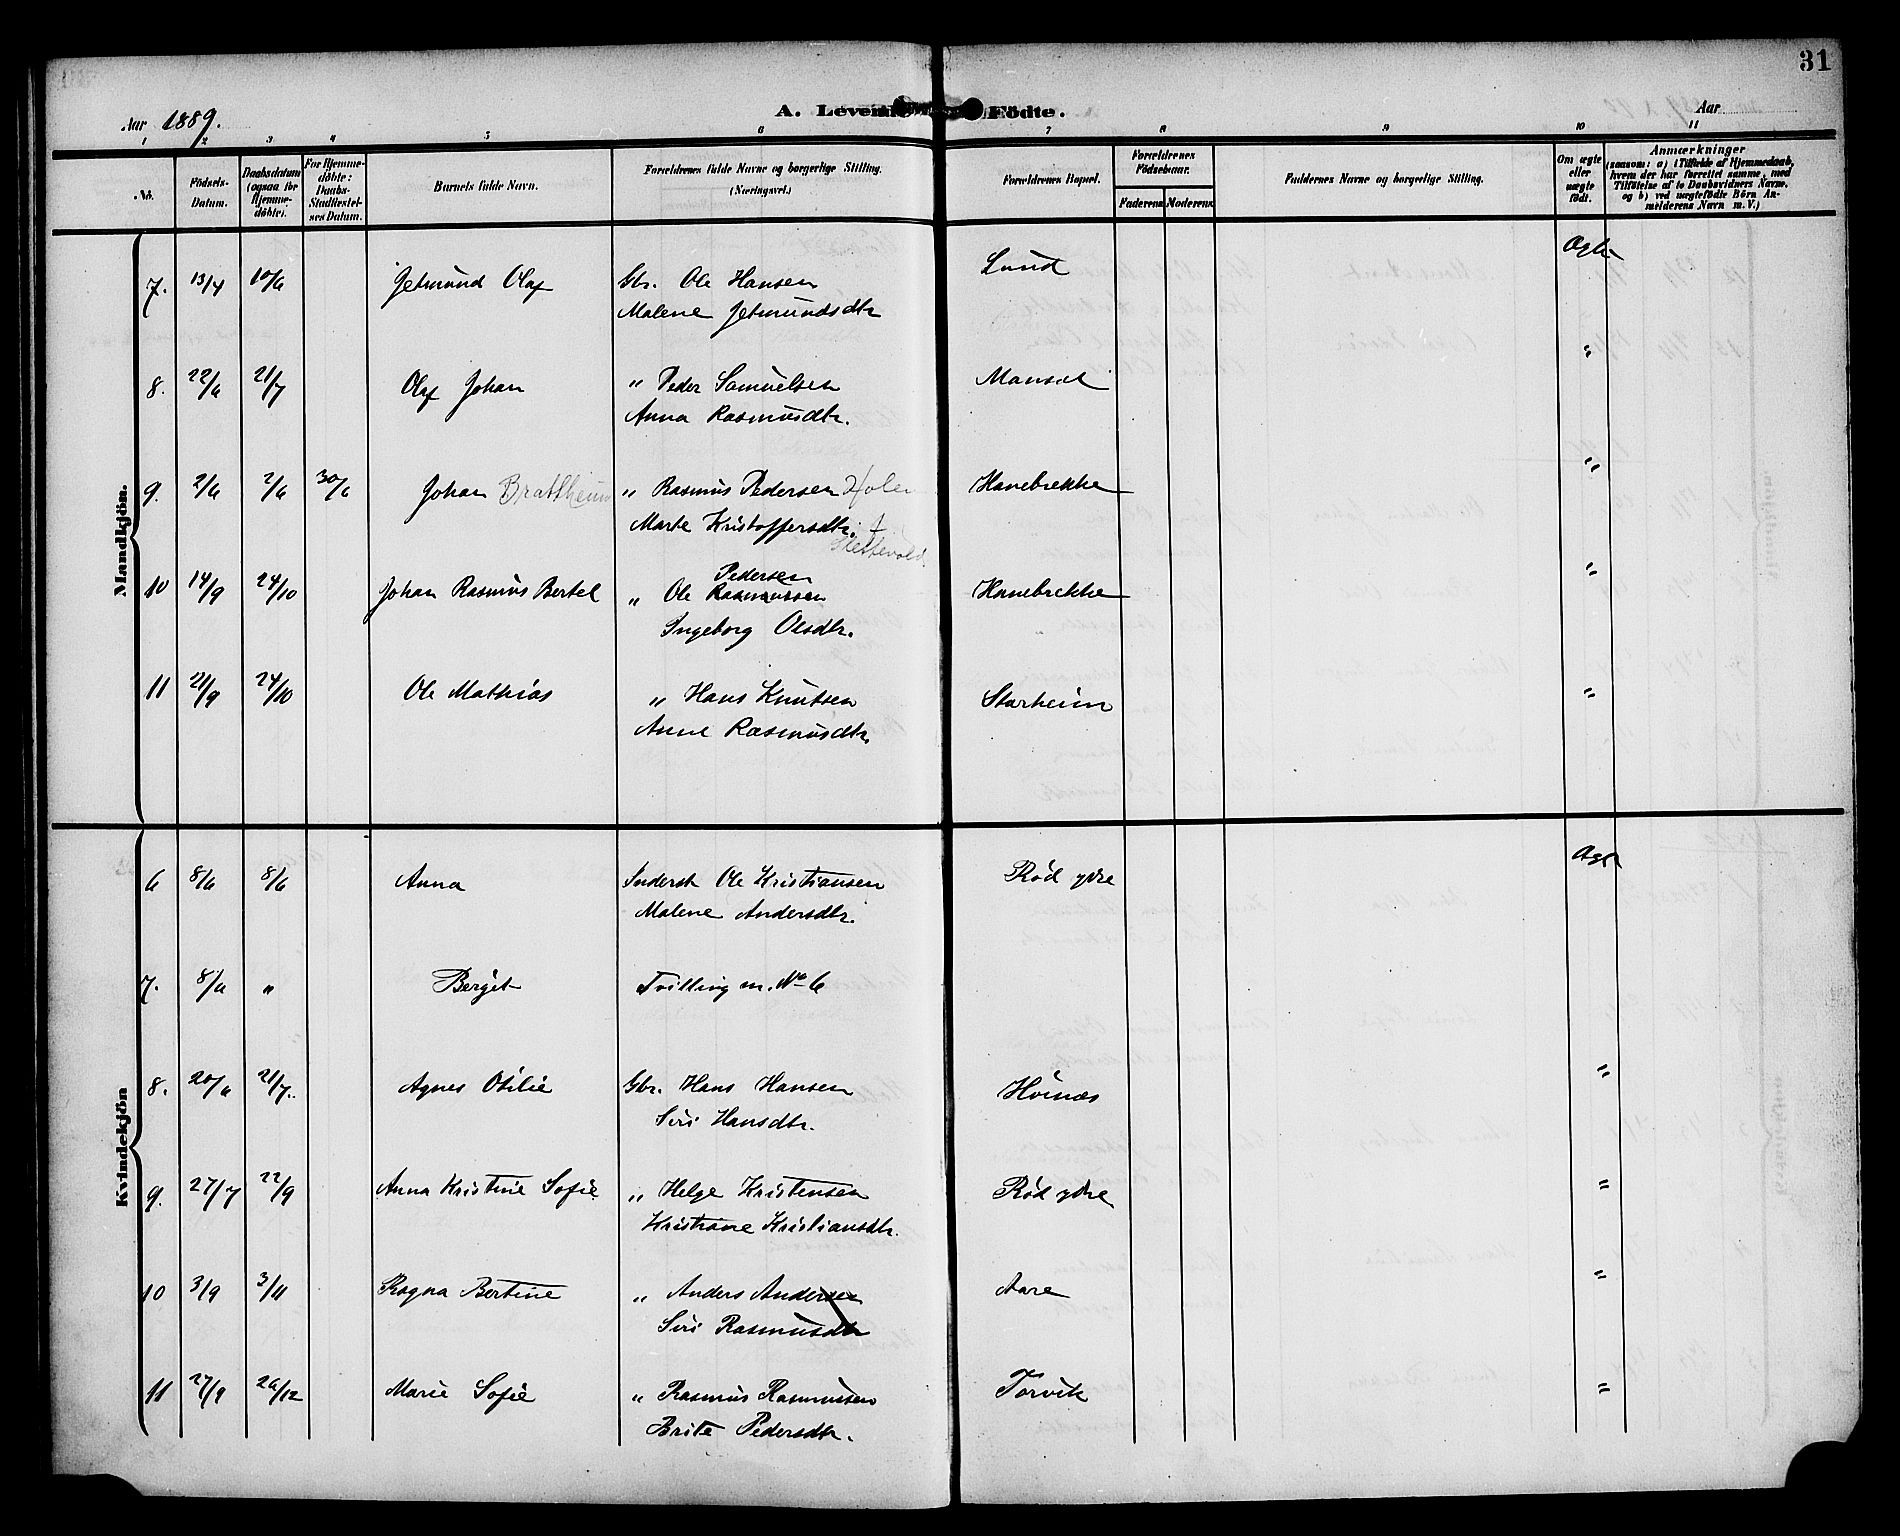 31
Aar 1889.
A. Levende Födte.
Aar
1 2 3 4 5 6 7 8 9 10 11
No.
Födsels-Datum.
Daabsdatum (ogsaa for Hjemme-döbte).
For Hjemme-döbte: Daabs-Stadfestel-ses Datum.
Barnets fulde Navn.
Foræeldrenes fulde Navne og borgerlige Stilling. (Næringsvei.)
Forældrenes Bopæl.
Forældrenes Födselsaar.
Faderens Moderens
Faddernes Navne og borgerlige Stilling.
Om ægte eller uægte födt.
Anmærkninger
(saasom: a) i Tilfælde af Hjemmedaab, hvem der har forrettet samme, med Tilföielse af to Daabsvidners Navne, og b) ved uægtefödte Börn An-melderens Navn m. V.)
Mandkjön.
7. 13/4 10/6 Jetmund Olaf Gbr. Ole Hansen Lund Ægte
Malene Jetmundsdtr
8. 22/6 21/7 Olaf Johan " Peder Samuelsen "
Anna Rasmusdtr.
9. 2/6 2/6 30/6 Johan Brattheim " Rasmus Pedersen Holen Hanebrekke "
Marte Kristoffersdtr.
10 14/9 24/10 Johan Rasmus Bertel " Ole Pedersen Rasmussen Hanebrekke "
Ingeborg Olsdtr.
11 21/9 24/10 Ole Mathias " Hans Knutsen Starheim "
Anne Rasmusdtr.
Kvindekjön
6 8/6 8/6 Anna Inderst Ole Kristiansen Rød ydre Ægte
Malene Andersdtr.
7. 8/6 " Berget Tvilling m. No 6
8. 20/6 21/7. Agnes Otilie Gbr. Hans Hansen Hoinæs "
Siri Hansdtr.
9. 27/7 22/9 Anna Kristine Sofie " Helge Kristensen Rød ydre "
Kristiane Kristiansdtr.
10 3/9 3/11 Ragna Bertine " Anders Andersen Aare "
Siri Rasmusdtr
11 27/9 26/12 Marie Sofie " Rasmus Rasmussen Torvik "
Brite Pedersdtr.